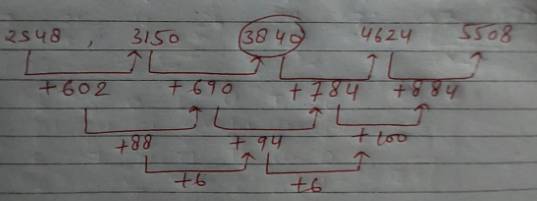 2548 , 3150 3840 4624 5508
+602 +690 +784 +884
+88 +94 +100
+6 +6